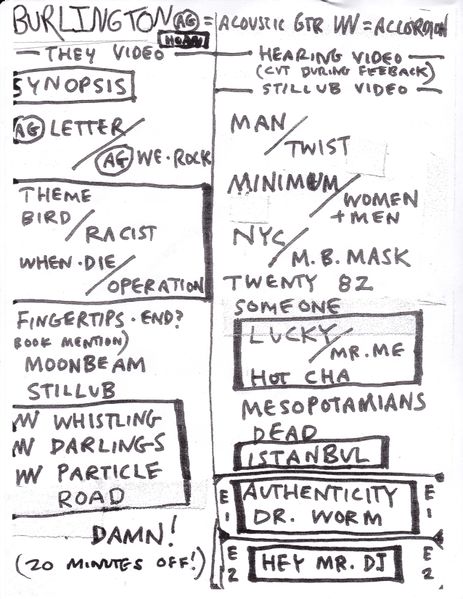 BURLINGTON AG = ACOUSTIC GTR VVV = ACCORDION
HORN
THEY VIDEO
SYNOPSIS
AG LETTER/
AG WE·ROCK
THEME
BIRD/
RACIST
WHEN·DIE/
OPERATION
FINGERTIPS·END?
BOOK MENTION)
MOONBEAM
STILLUB
VVV WHISTLING
VVV DARLINGS
VVV PARTICLE
ROAD
DAMN!
(20 MINUTES OFF!)
HEARING VIDEO
(CUT DURING FEEBACK)
STILLUB VIDEO
MAN/
TWIST
MINIMUM/
WOMEN
+ MEN
NYC/
M.B. MASK
TWENTY 82
SOMEONE
LUCKY/
MR. ME
HOT CHA
MESOPOTAMIANS
DEAD
ISTANBUL
E1 AUTHENTICITY E1
DR. WORM
E2 HEY MR. DJ E2